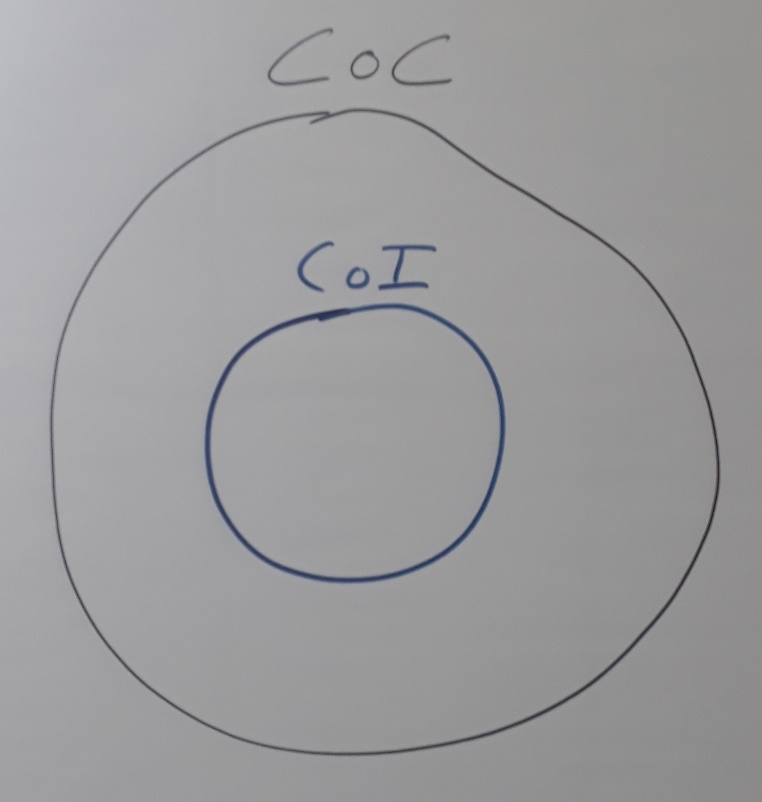 CoC
CoI